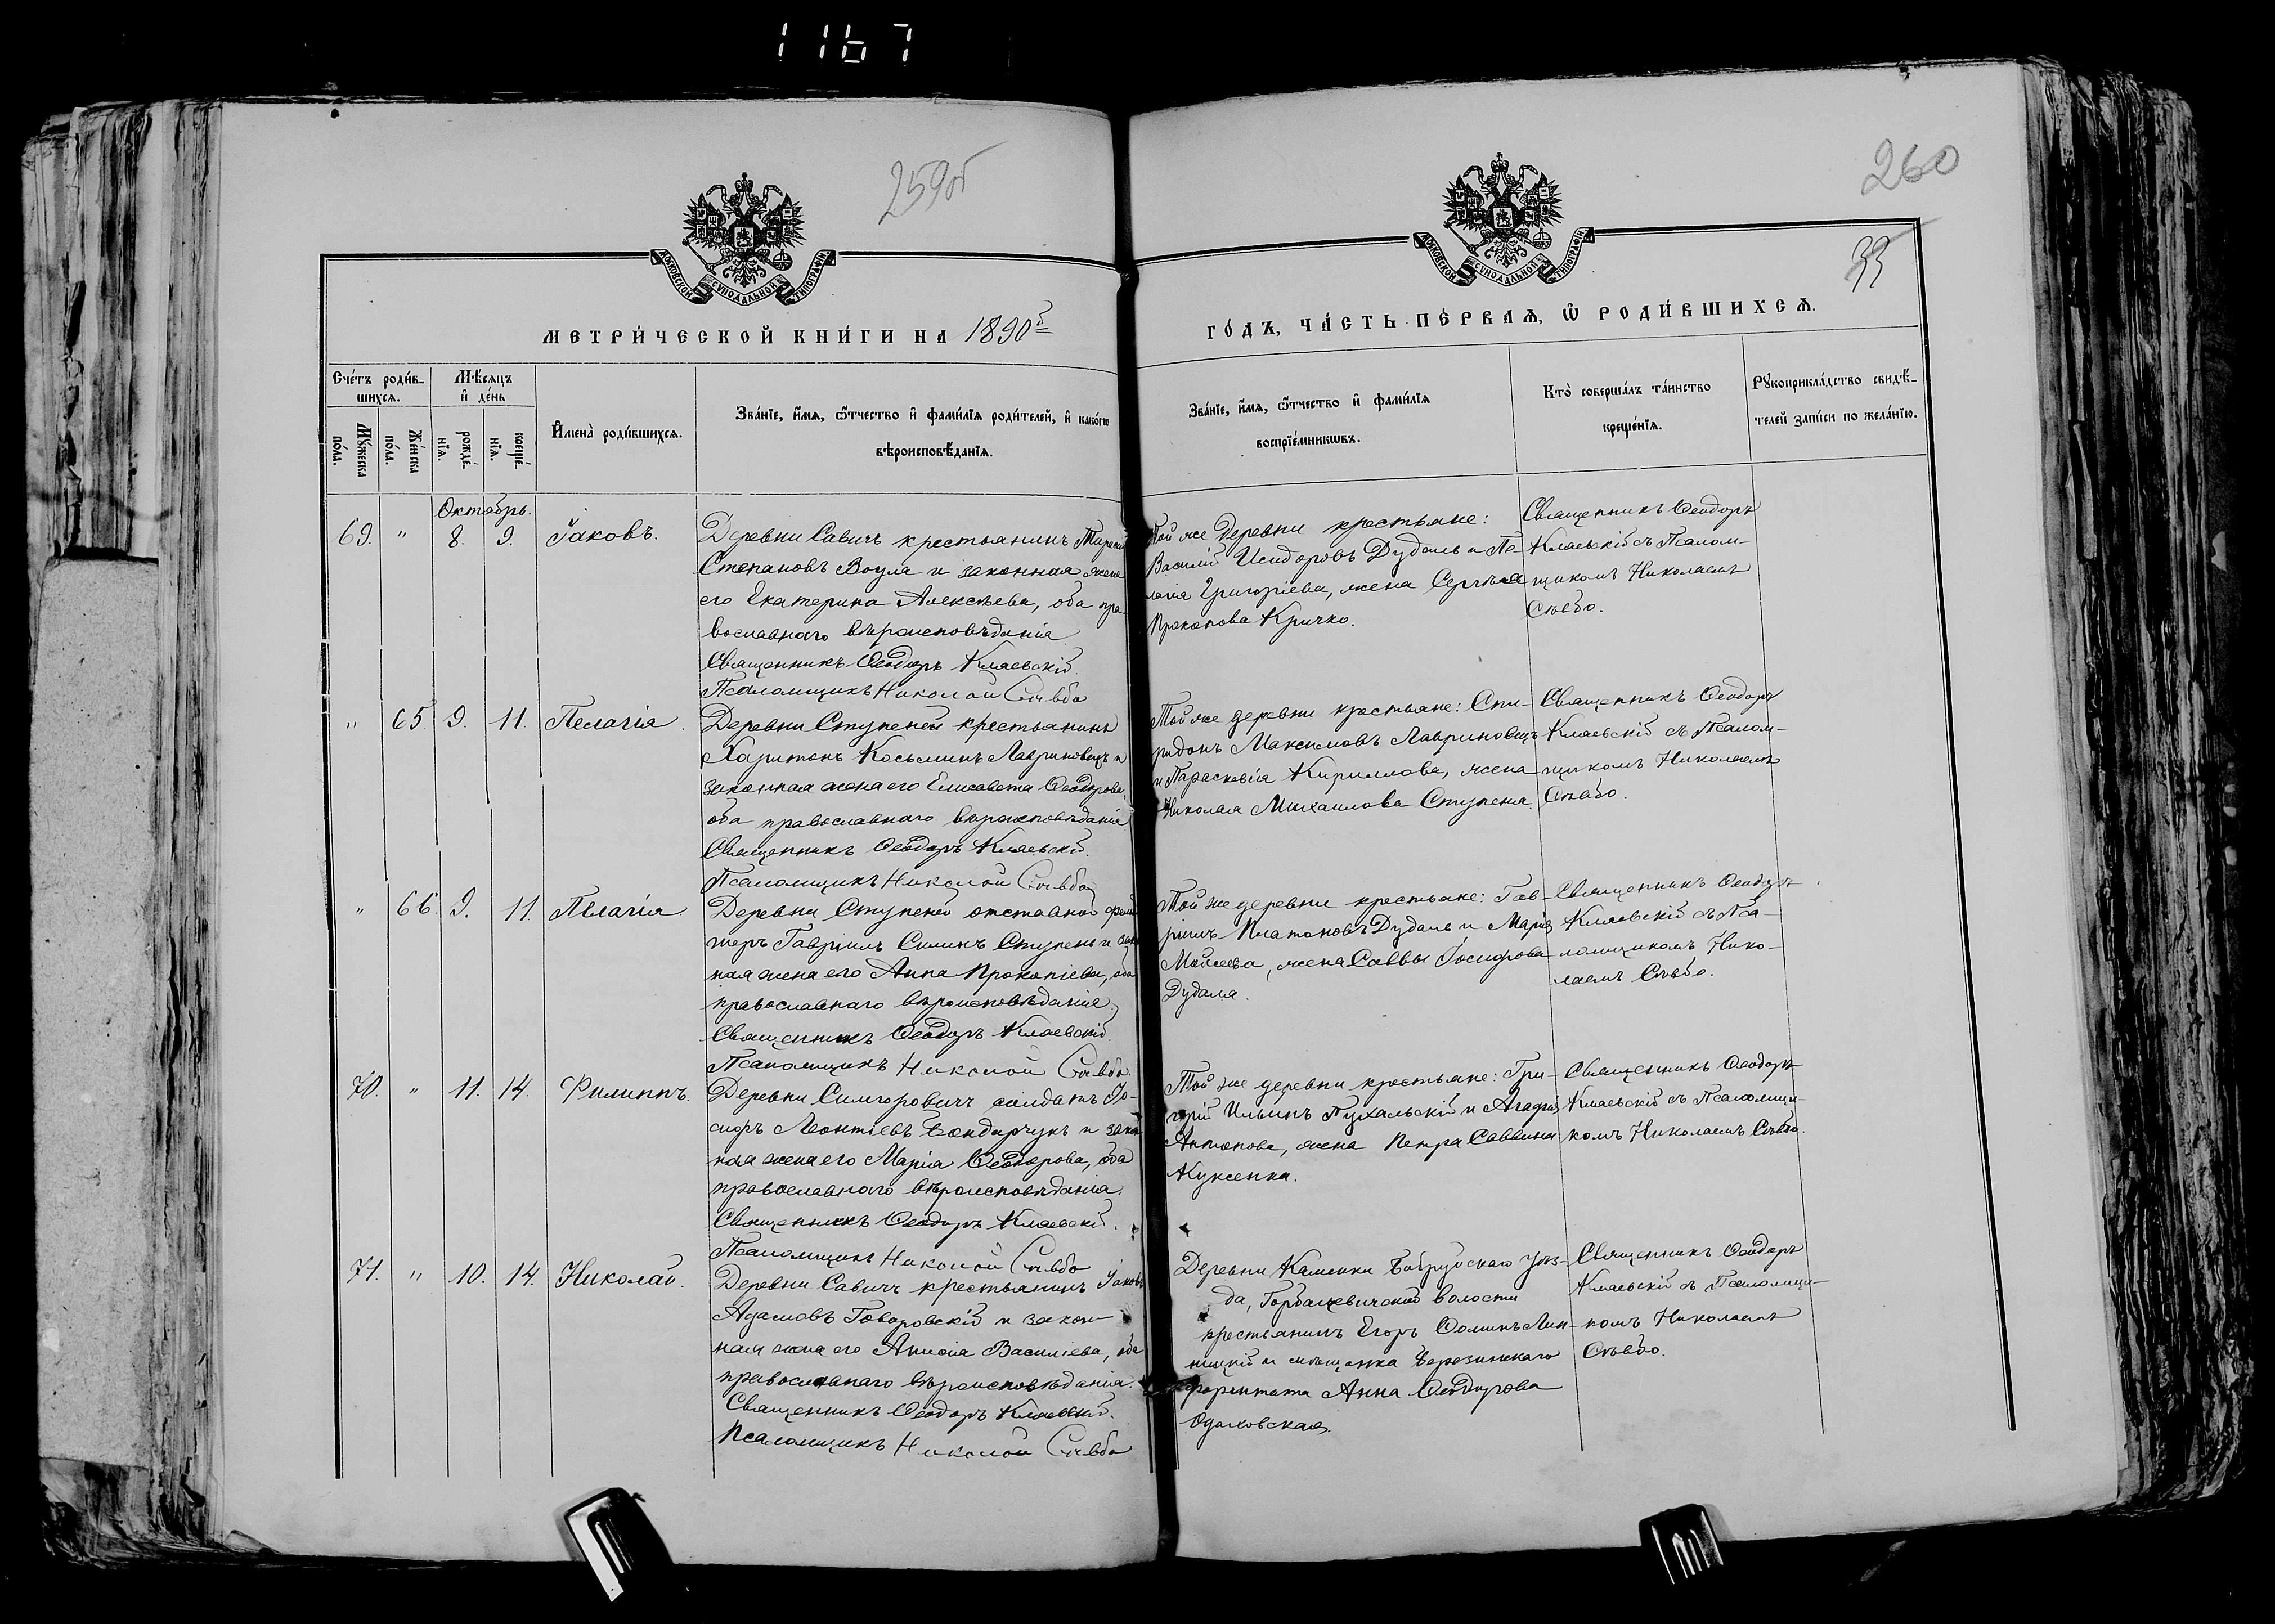 1167
259об
260
33
МОСКОВСКОЙ СѴНОДАЛЬНОЙ ТИПОГРАФІИ
МОСКОВСКОЙ СѴНОДАЛЬНОЙ ТИПОГРАФІИ
МЕТРИ́ЧЕСКОЙ КНИ́ГИ НА 1890й
ГО́ДЪ, ЧА́СТЬ ПЕ́РВАѦ, Ѿ РОДИ́ВШИХСѦ.
Сче́тъ роди́в-
шихсѧ.
Мѣ́сяцъ
и҆ де́нь
Мꙋ́жеска
по́ла.
Же́нска
по́ла.
рожде́-
нїѧ.
креще́-
нїѧ.
И҆мена̀ роди́вшихсѧ.
Зва́нїе, и҆́мѧ, ѻ҆́тчество и҆ фами́лїѧ роди́телей, и҆ како́гѡ
вѣроисповѣ́данїѧ.
Зва́нїе, и҆́мѧ, ѻ҆́тчество и҆ фами́лїѧ
воспрїе́мникѡвъ.
Кто̀ соверша́лъ та́инство
креще́нїѧ.
Рꙋкоприкла́дство свидѣ́-
телей за́писи по жела́нїю.
Октябрь.
69. " 8. 9. Іаковъ.
Деревни Савичъ крестьянинъ Тарасій
Степановъ Воула и законная жена
его Екатерина Алексѣева, оба пра-
вославнаго вѣроисповѣданія
Священникъ Ѳеодоръ Клаевскій.
Псаломщикъ Николай Съвбо
Той же деревни крестьяне:
Василій Исидоровъ Дудаль и Пе-
лагія Григоріева, жена Сергѣя
Прокопова Кричко.
Священникъ Ѳеодоръ
Клаевскій съ Псалом-
щикомъ Николаемъ
Съвбо.
" 65. 9. 11. Пелагія.
Деревни Ступеней крестьянинъ
Харитонъ Косьминъ Лавриновецъ и
законная жена его Елисавета Ѳеодорова,
оба православнаго вѣроисповѣданія
Священникъ Ѳеодоръ Клаевскій.
Псаломщикъ Николай Съвбо
Той же деревни крестьяне: Спи-
ридонъ Максимовъ Лавриновецъ
и Параскевія Кириллова, жена
Николая Михаилова Ступеня.
Священникъ Ѳеодоръ
Клаевскій съ Псалом-
щикомъ Николаемъ
Съвбо.
" 66. 9. 11. Пелагія
Деревни Ступеней отставной фельд
шеръ Гавріилъ Силинъ Ступень и закон
ная жена его Анна Прокопіева, оба
православнаго вѣроисповѣданія.
Священникъ Ѳеодоръ Клаевскій.
Псаломщикъ Николай Съвбо
Той же деревни крестьяне: Гав-
ріилъ Платоновъ Дудаль и Марія
Моисеева, жена Саввы Іосифова
Дудаля.
Священникъ Ѳеодоръ
Клаевскій съ Пса-
ломщикомъ Нико-
лаемъ Съвбо.
70. " 11. 14. Филиппъ.
Деревни Симоровичъ солдатъ Іо-
сифъ Леонтіевъ Бондарчукъ и закон
ная жена его Марія Ѳеодорова, оба
православнаго вѣроисповѣданія.
Священникъ Ѳеодоръ Клаевскій.
Псаломщикъ Николай Съвбо
Той же деревни крестьяне: Гри-
горій Ильинъ Пухальскій и Агафія
Антонова, жена Петра Саввина
Куксенка.
Священникъ Ѳеодоръ
Клаевскій съ Псаломщи-
комъ Николаемъ Съвбо.
71. " 10. 14. Николай.
Деревни Савичъ крестьянинъ Іаковъ
Адамовъ Говоровскій и закон-
ная жена его Анисія Василіева, оба
православнаго вѣроисповѣданія.
Священникъ Ѳеодоръ Клаевскій.
Псаломщикъ Николай Съвбо
Деревни Каменки Бобруйскаго Уѣз-
да, Горбацевичской волости
крестьянинъ Егоръ Ѳоминъ Лип-
ницкій и мѣщанка Березинскаго
форштата Анна Ѳеодорова
Одаховская.
Священникъ Ѳеодоръ
Клаевскій съ Псаломщи-
комъ Николаемъ
Съвбо.